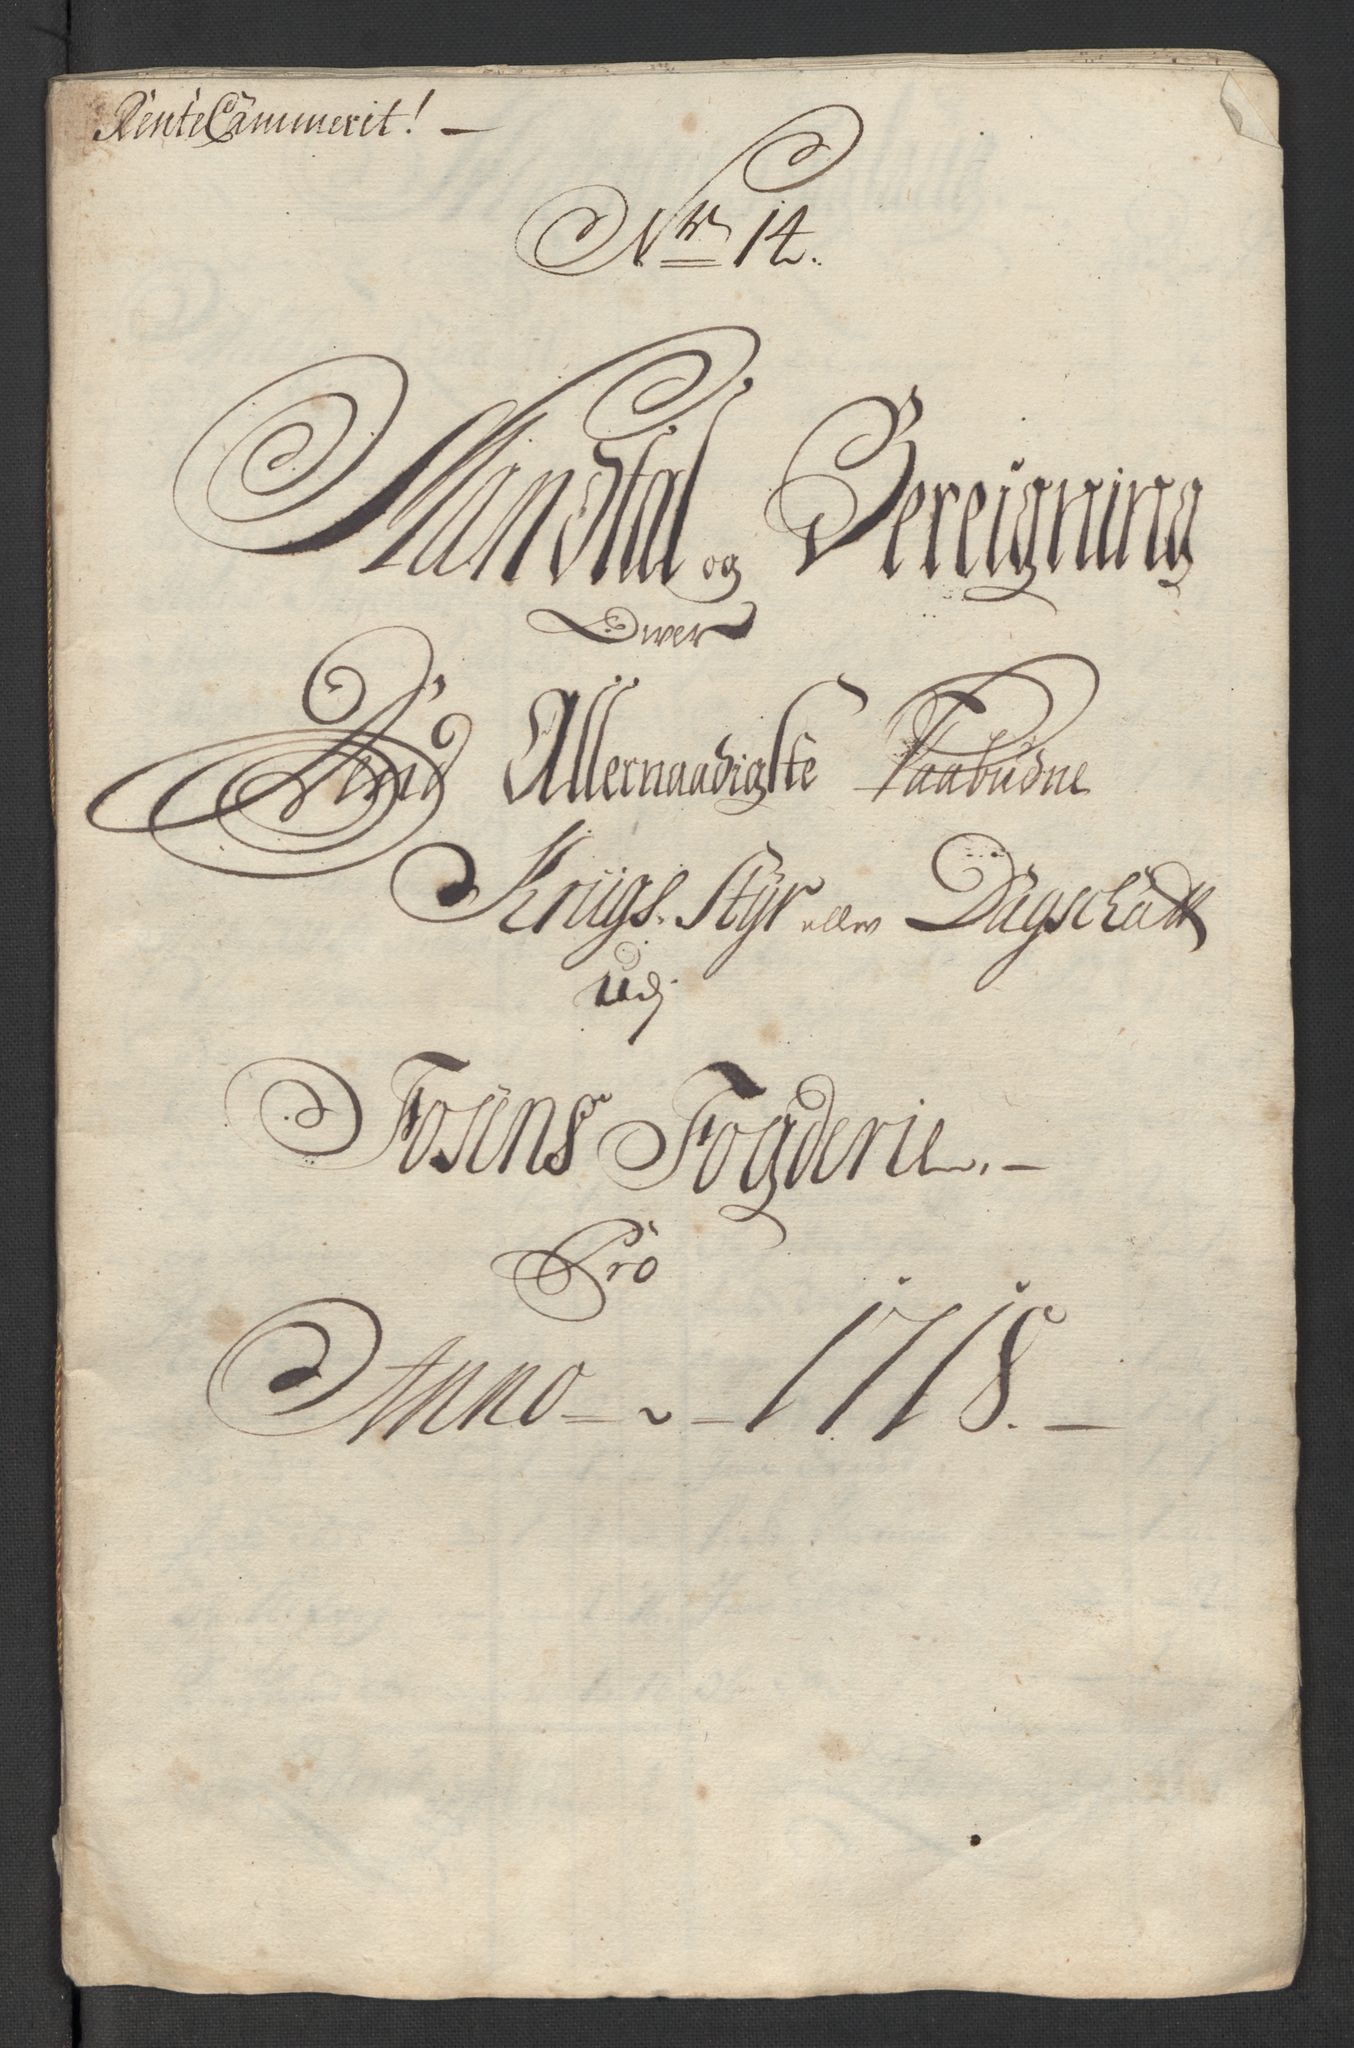 RenteCammerit! —
Nr 14.
Mandtal og Bereigning
Over
Dend Allernaadigste Paabudne
Krigs-Styr eller Dagschatt
Udj
Fosens Fogderie. —
Pro
Anno — 1718. —